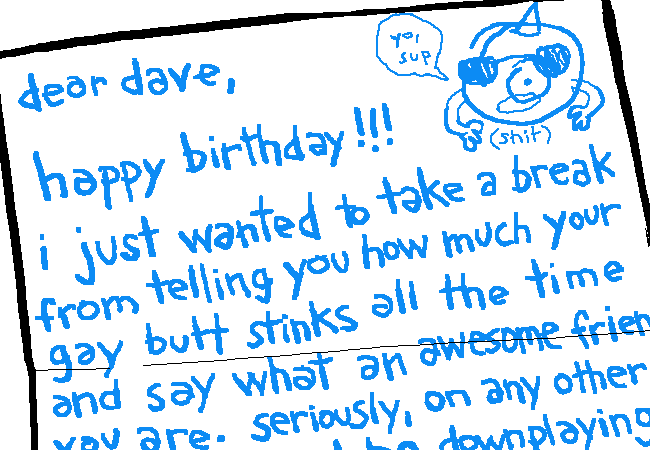 yo,
sup
(shit)
dear dave,
happy birthday!!!
i just wanted to take a break
from telling you how much your
gay butt stinks all the time
and say what an awesome frien
you are. seriously, on any other
be downplaying